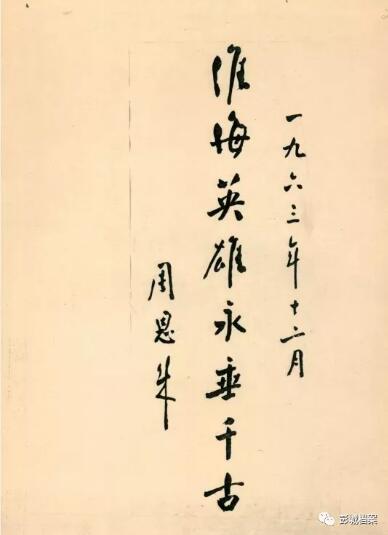 一九六三年十二月
淮海英雄永垂千古
周恩来
彭城档案